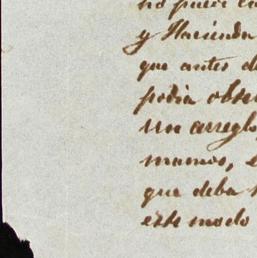 no puede
y Hacienda
que antes de
podia obser
un arreglo
mamos, e
que deba
este modo